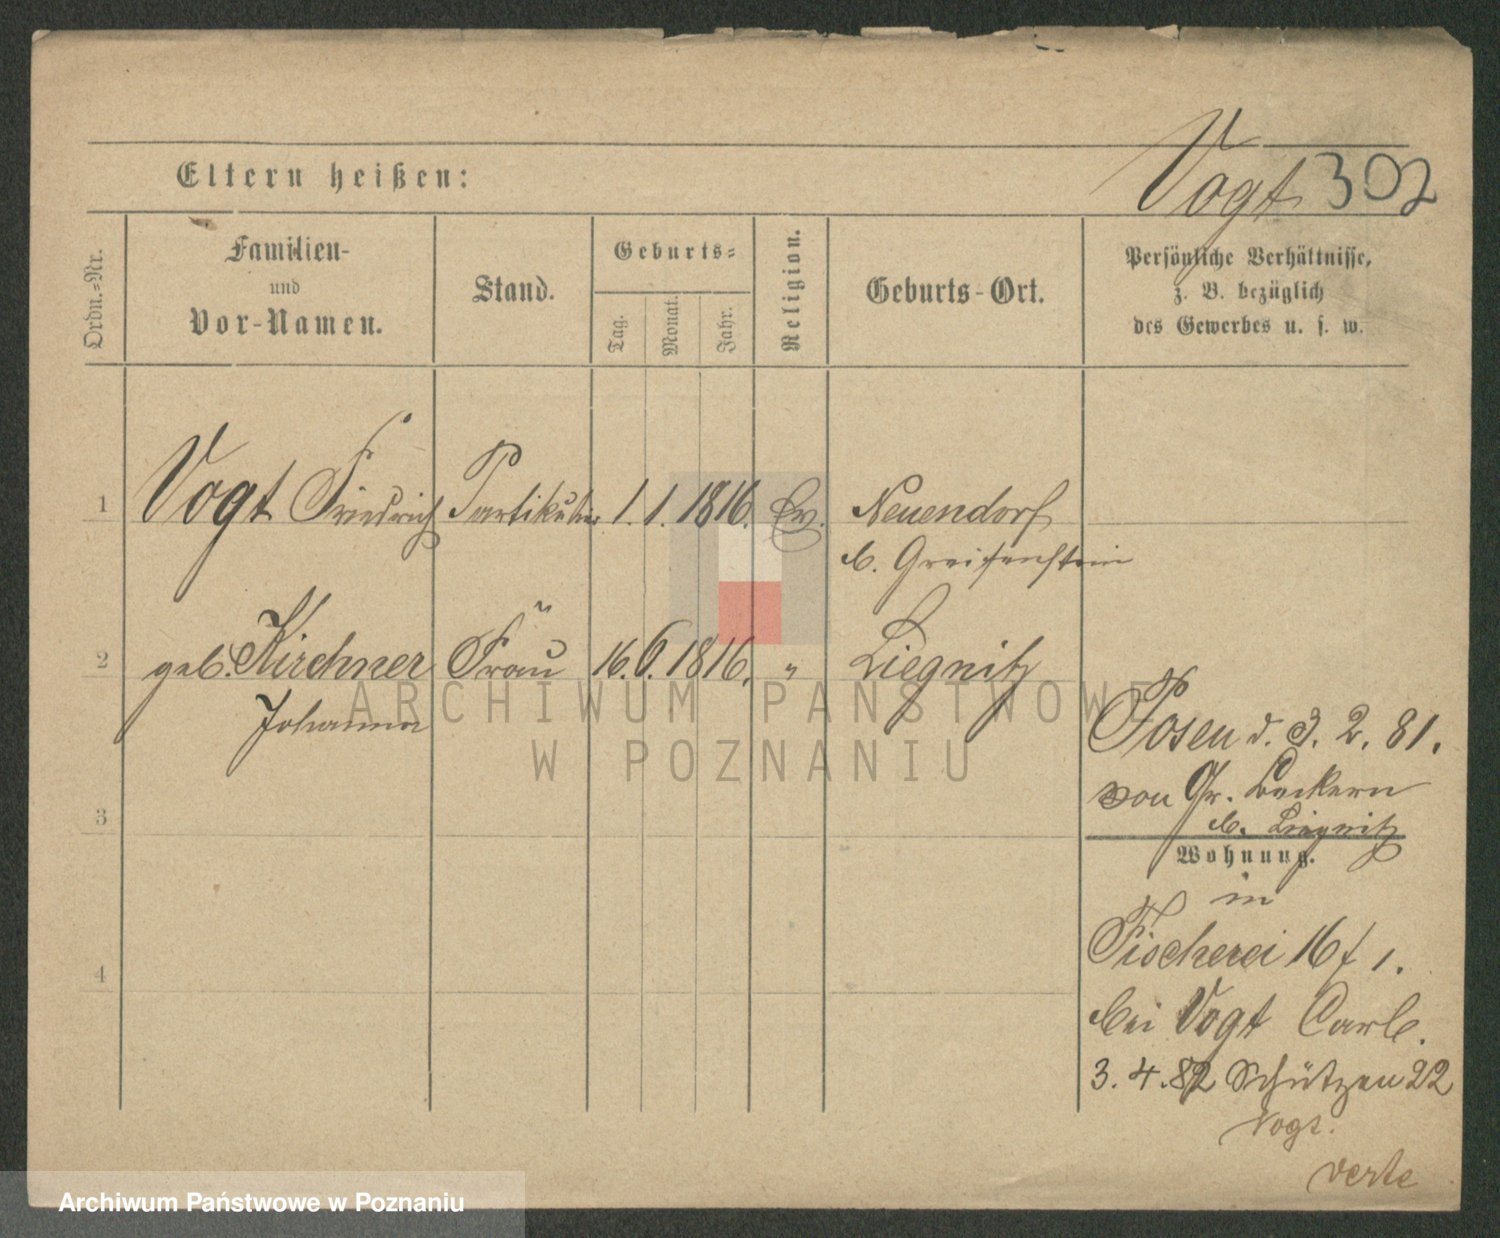 Vogt 302
Eltern heißen:
Ordn.-Nr.
Familien-
und
Vor-Namen.
Stand.
Geburts-
Tag.
Monat.
Jahr.
Religion.
Geburts-Ort.
Persönliche Verhältnisse,
z. B. bezüglich
des Gewerbes u. s. w.
1 Vogt Friedrich Partikulier 1. 1. 1816. Ev. Neuendorf
b. Greifenstein
2 geb. Kirchner Frau 16. 6. 1816. " Liegnitz
Johanna
Posen d. 3. 2. 81.
von Gr. Beckern
b. Liegnitz
3
Wohnung.
in
Fischerei 16/1.
4
bei Vogt Carl.
3. 4. 82 Schützen 22
Vogt.
verte
ARCHIWUM PAŃSTWOWE
W POZNANIU
Archiwum Państwowe w Poznaniu